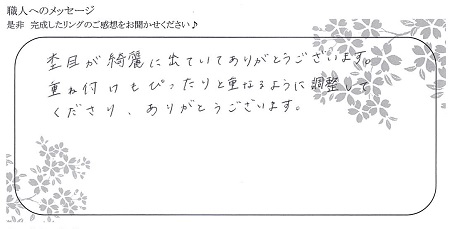 職人へのメッセージ
是非 完成したリングのご感想をお聞かせください♪
杢目が綺麗に出ていてありがとうございます。
重ね付けもぴったりと重なるように調整して
くださり、ありがとうございます。